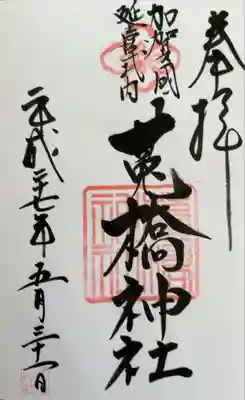 奉拝
加賀國
延喜式内
菟橋神社
平成二十七年五月三十一日